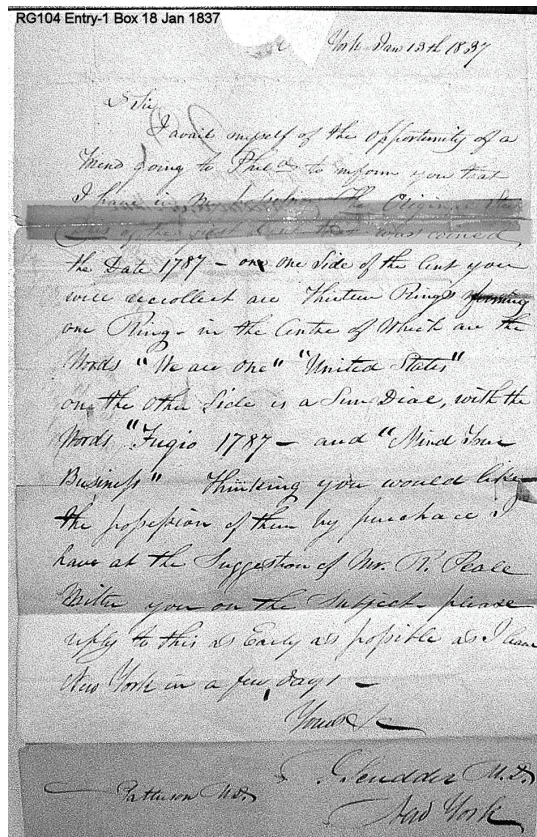 RG104 Entry-1 Box 18 Jan 1837
York Jan 13th 1837
Sir
I avail myself of the opportunity of a
friend going to Phila to inform you that
I have in my possession the Original
of the first Cent that was coined,
the Date 1787 – one one Side of the Cent you
will recollect are Thirteen Rings forming
one Ring – in the Centre of Which are the
Words "We are One" "United States"
on the other Side is a Sun Dial, with the
Words "Fugio 1787 – and "Mind Your
Business" Thinking you would like
the possession of them by purchace I
have at the Suggestion of Mr. R. Peale
Written you on the Subject – please
reply to this as Early as possible as I leave
New York in a few days –
Yours &c
Scudder M.D.
Patterson M.D.
New York